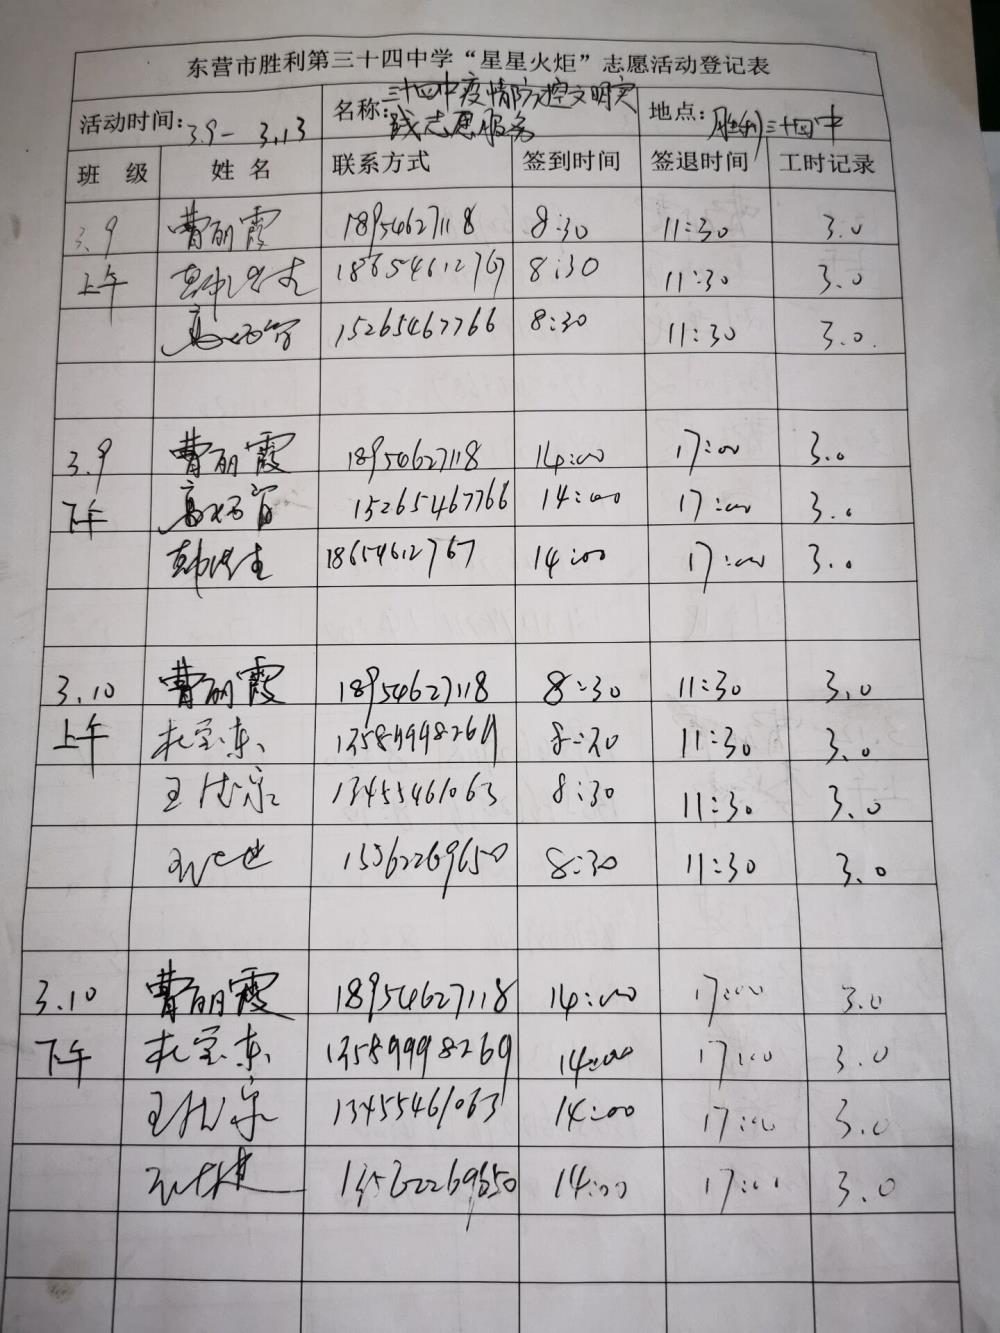 东营市胜利第三十四中学“星星火炬”志愿活动登记表
活动时间：3.9－3.13 名称：三十四中疫情防控文明实践志愿服务 地点：胜利三十四中
班 级 姓 名 联系方式 签到时间 签退时间 工时记录
3.9 曹丽霞 18954627118 8:30 11:30 3.0
上午 18654612767 8:30 11:30 3.0
15265467766 8:30 11:30 3.0.
3.9 曹丽霞 18954627118 14:00 17:00 3.0
下午 15265467766 14:00 17:00 3.0
18654612767 14:00 17:00 3.0
3.10 曹丽霞 18954627118 8:30 11:30 3.0
上午 杜宝东 13589998269 8:30 11:30 3.0
13455461063 8:30 11:30 3.0
13562269650 8:30 11:30 3.0
3.10 曹丽霞 18954627118 14:00 17:00 3.0
下午 杜宝东 13589998269 14:00 17:00 3.0
13455461063 14:00 17:00 3.0
13562269650 14:00 17:00 3.0